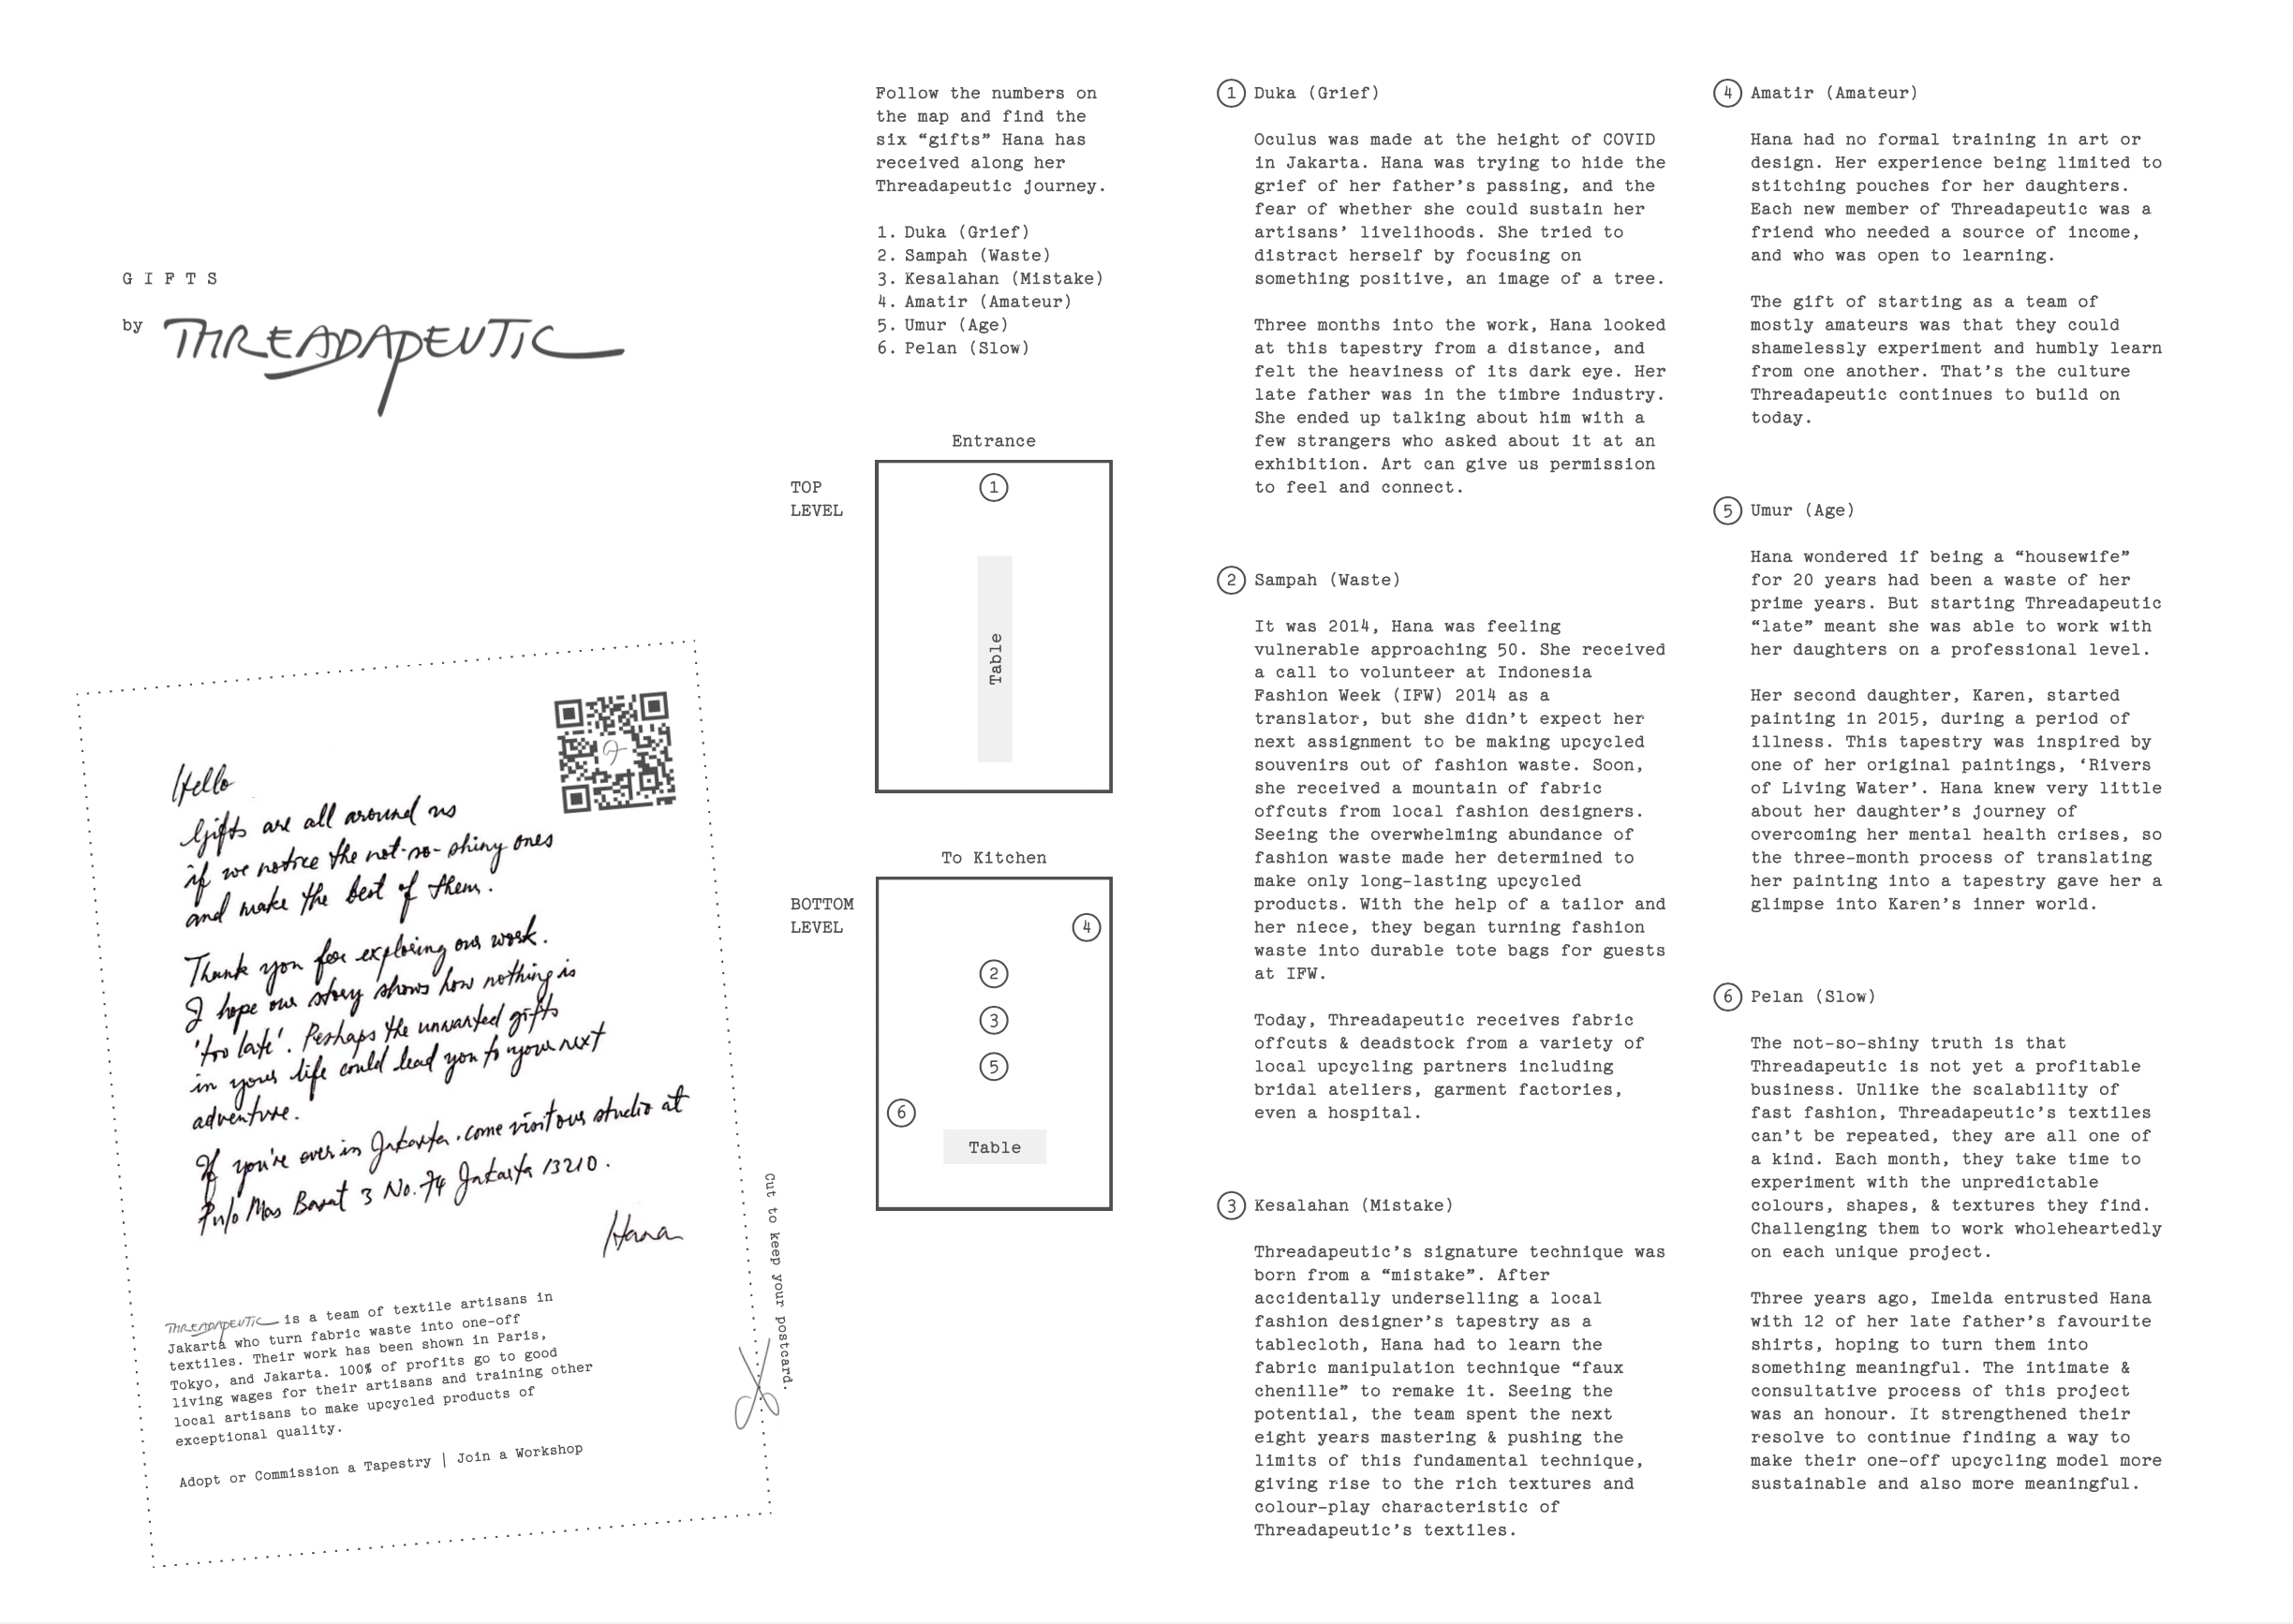 GIFTS
by THREADAPEUTIC
Hello
Gifts are all around us
if we notice the not-so-shiny ones
and make the best of them.
Thank you for exploring our work.
I hope our story shows how nothing is
'too late'. Perhaps the unwanted gifts
in your life could lead you to your next
adventure.
If you're ever in Jakarta, come visit our studio at
Pulo Mas Barat 3 No. 74 Jakarta 13210.
Hana
THREADAPEUTIC is a team of textile artisans in
Jakarta who turn fabric waste into one-off
textiles. Their work has been shown in Paris,
Tokyo, and Jakarta. 100% of profits go to good
living wages for their artisans and training other
local artisans to make upcycled products of
exceptional quality.
Adopt or Commission a Tapestry | Join a Workshop
Cut to keep your postcard.
Follow the numbers on
the map and find the
six “gifts” Hana has
received along her
Threadapeutic journey.
1. Duka (Grief)
2. Sampah (Waste)
3. Kesalahan (Mistake)
4. Amatir (Amateur)
5. Umur (Age)
6. Pelan (Slow)
Entrance
TOP
LEVEL
1
Table
To Kitchen
BOTTOM
LEVEL
4
2
3
5
6
Table
1 Duka (Grief)
Oculus was made at the height of COVID
in Jakarta. Hana was trying to hide the
grief of her father’s passing, and the
fear of whether she could sustain her
artisans’ livelihoods. She tried to
distract herself by focusing on
something positive, an image of a tree.
Three months into the work, Hana looked
at this tapestry from a distance, and
felt the heaviness of its dark eye. Her
late father was in the timbre industry.
She ended up talking about him with a
few strangers who asked about it at an
exhibition. Art can give us permission
to feel and connect.
2 Sampah (Waste)
It was 2014, Hana was feeling
vulnerable approaching 50. She received
a call to volunteer at Indonesia
Fashion Week (IFW) 2014 as a
translator, but she didn’t expect her
next assignment to be making upcycled
souvenirs out of fashion waste. Soon,
she received a mountain of fabric
offcuts from local fashion designers.
Seeing the overwhelming abundance of
fashion waste made her determined to
make only long-lasting upcycled
products. With the help of a tailor and
her niece, they began turning fashion
waste into durable tote bags for guests
at IFW.
Today, Threadapeutic receives fabric
offcuts & deadstock from a variety of
local upcycling partners including
bridal ateliers, garment factories,
even a hospital.
3 Kesalahan (Mistake)
Threadapeutic’s signature technique was
born from a “mistake”. After
accidentally underselling a local
fashion designer’s tapestry as a
tablecloth, Hana had to learn the
fabric manipulation technique “faux
chenille” to remake it. Seeing the
potential, the team spent the next
eight years mastering & pushing the
limits of this fundamental technique,
giving rise to the rich textures and
colour-play characteristic of
Threadapeutic’s textiles.
4 Amatir (Amateur)
Hana had no formal training in art or
design. Her experience being limited to
stitching pouches for her daughters.
Each new member of Threadapeutic was a
friend who needed a source of income,
and who was open to learning.
The gift of starting as a team of
mostly amateurs was that they could
shamelessly experiment and humbly learn
from one another. That’s the culture
Threadapeutic continues to build on
today.
5 Umur (Age)
Hana wondered if being a “housewife”
for 20 years had been a waste of her
prime years. But starting Threadapeutic
“late” meant she was able to work with
her daughters on a professional level.
Her second daughter, Karen, started
painting in 2015, during a period of
illness. This tapestry was inspired by
one of her original paintings, ‘Rivers
of Living Water’. Hana knew very little
about her daughter’s journey of
overcoming her mental health crises, so
the three-month process of translating
her painting into a tapestry gave her a
glimpse into Karen’s inner world.
6 Pelan (Slow)
The not-so-shiny truth is that
Threadapeutic is not yet a profitable
business. Unlike the scalability of
fast fashion, Threadapeutic’s textiles
can’t be repeated, they are all one of
a kind. Each month, they take time to
experiment with the unpredictable
colours, shapes, & textures they find.
Challenging them to work wholeheartedly
on each unique project.
Three years ago, Imelda entrusted Hana
with 12 of her late father’s favourite
shirts, hoping to turn them into
something meaningful. The intimate &
consultative process of this project
was an honour. It strengthened their
resolve to continue finding a way to
make their one-off upcycling model more
sustainable and also more meaningful.